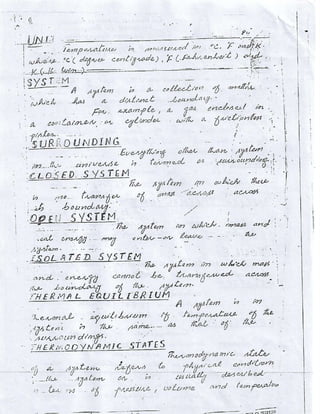 UNIT
Temperature is measured in °C, F and K
where °C (degree centigrade), F (Fahrenheit) and
K (Kelvin).
SYSTEM
A system is a collection of matter
which has a distinct boundary.
For example, a gas enclosed in
a container or cylinder with a frictionless
piston.
SURROUNDING
Everything other than system
in the universe is termed as surrounding.
CLOSED SYSTEM
The system in which there
is no transfer of mass across across
its boundary.
OPEN SYSTEM
The system in which mass and
heat energy may enter or leave the
system.
ISOLATED SYSTEM
The system in which mass
and energy cannot be transferred across
the boundary of the system.
THERMAL EQUILIBRIUM
A system is in
thermal equilibrium if temperature of the
system is the same as that of the
surroundings.
THERMODYNAMIC STATES
Thermodynamic state
of a system refers to physical condition
the system or is usually described
in terms of pressure, volume and temperature